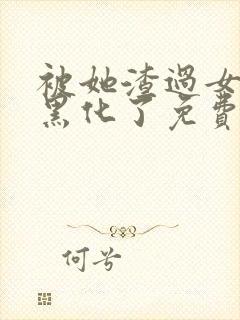 被她渣过女
黑化了免費
何兮